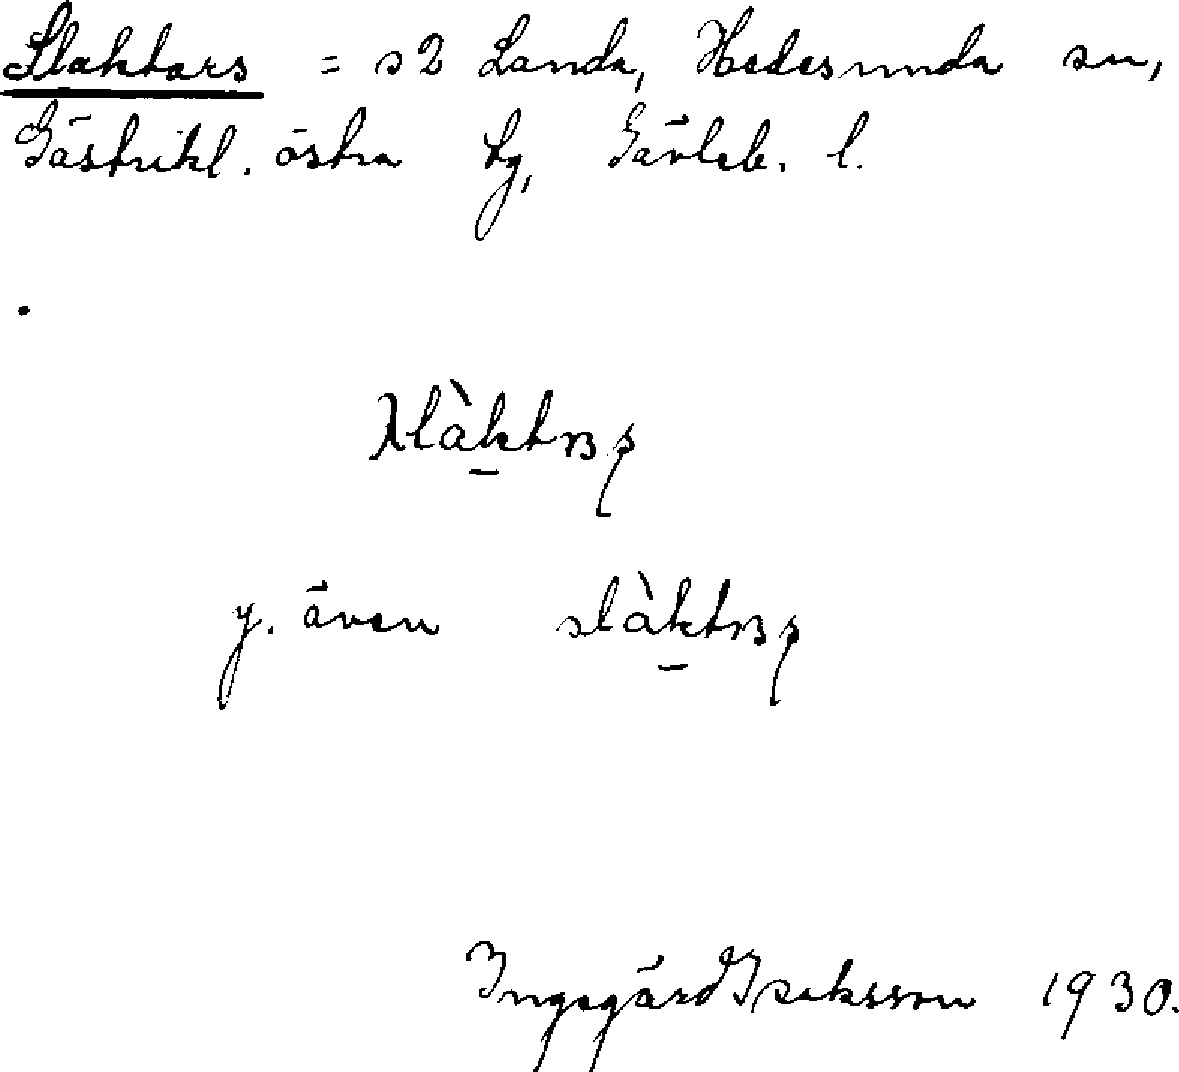 Slaktars = s2 Landa, Hedesunda sn,
Gästrikl. östra tg, Gävleb. l.
y. även
Ingegärd Isaksson 1930.